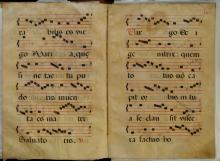 ra bilis es vir
go Mari a, que
si ne tac tu pu
do ris inuen
ta es ma ter
Saluato ris.
Vir go De i
ge nitrix quem
to tus nó ca
pit or bis in tu
a se clau sit viscer
ra factus ho